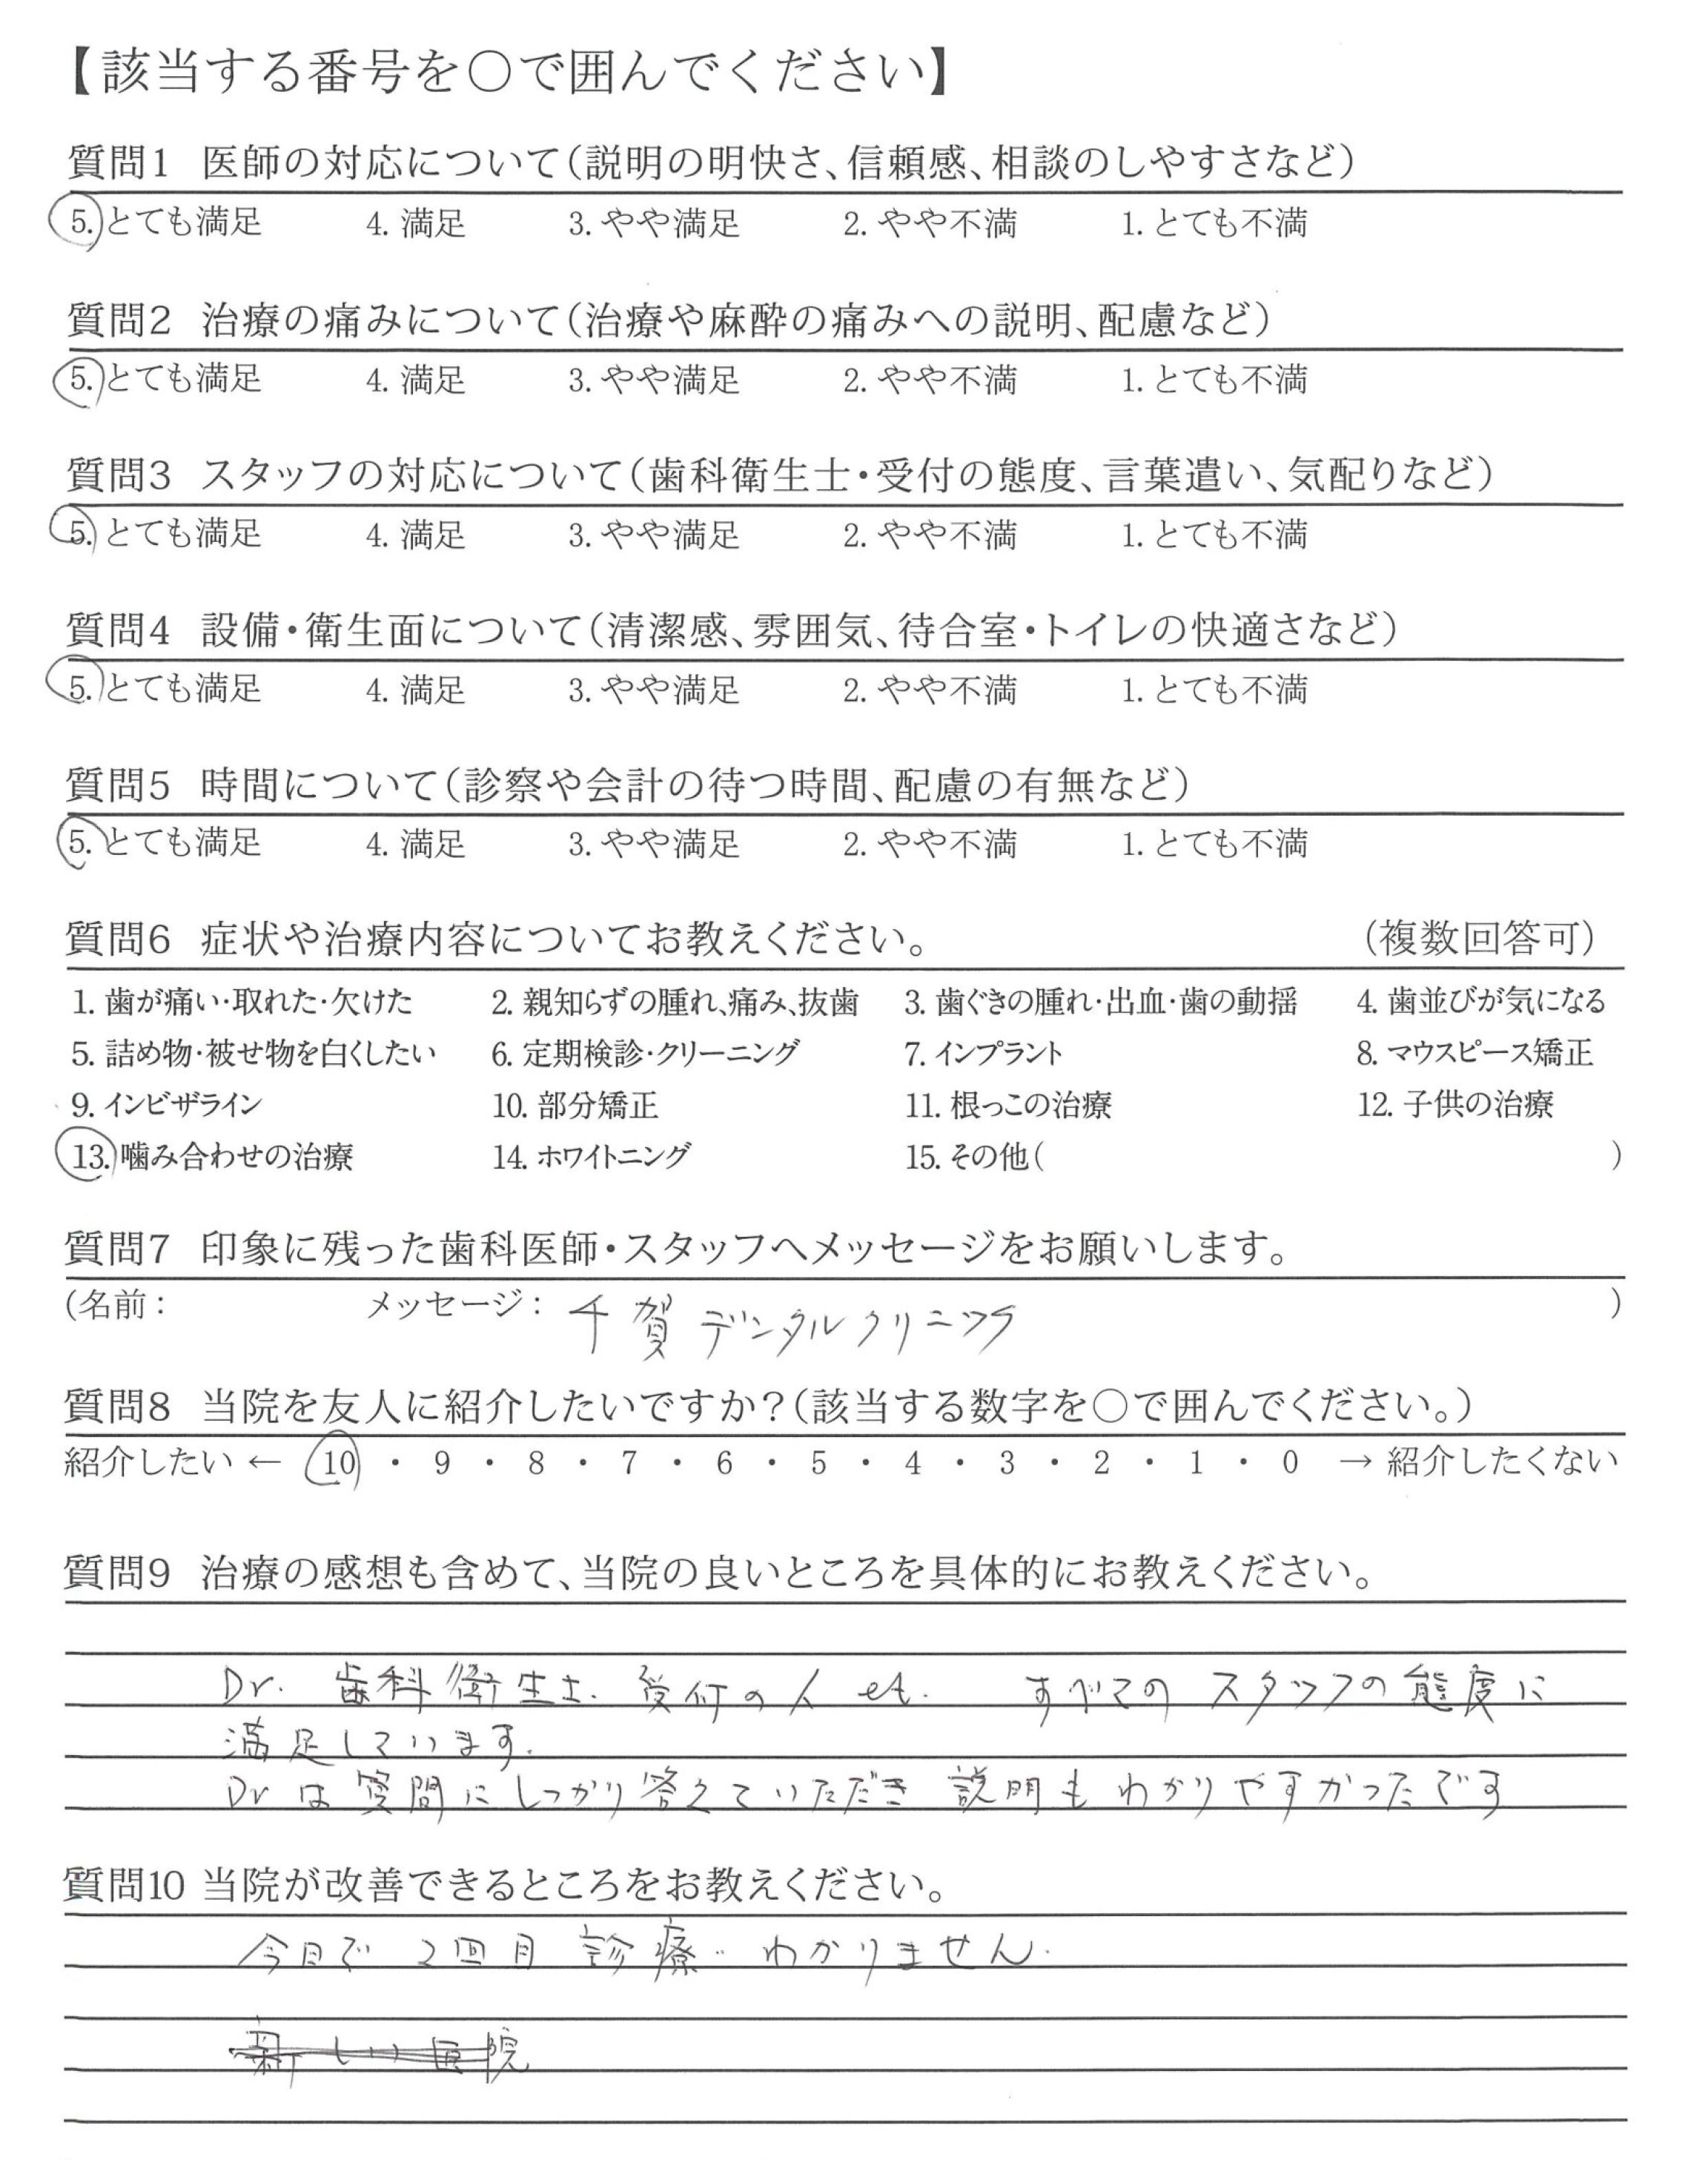 【該当する番号を○で囲んでください】
質問1 医師の対応について（説明の明快さ、信頼感、相談のしやすさなど）
5. とても満足 4. 満足 3. やや満足 2. やや不満 1. とても不満
質問2 治療の痛みについて（治療や麻酔の痛みへの説明、配慮など）
5. とても満足 4. 満足 3. やや満足 2. やや不満 1. とても不満
質問3 スタッフの対応について（歯科衛生士・受付の態度、言葉遣い、気配りなど）
5. とても満足 4. 満足 3. やや満足 2. やや不満 1. とても不満
質問4 設備・衛生面について（清潔感、雰囲気、待合室・トイレの快適さなど）
5. とても満足 4. 満足 3. やや満足 2. やや不満 1. とても不満
質問5 時間について（診察や会計の待つ時間、配慮の有無など）
5. とても満足 4. 満足 3. やや満足 2. やや不満 1. とても不満
質問6 症状や治療内容についてお教えください。 （複数回答可）
1. 歯が痛い・取れた・欠けた 2. 親知らずの腫れ、痛み、抜歯 3. 歯ぐきの腫れ・出血・歯の動揺 4. 歯並びが気になる
5. 詰め物・被せ物を白くしたい 6. 定期検診・クリーニング 7. インプラント 8. マウスピース矯正
9. インビザライン 10. 部分矯正 11. 根っこの治療 12. 子供の治療
13. 噛み合わせの治療 14. ホワイトニング 15. その他（ ）
質問7 印象に残った歯科医師・スタッフへメッセージをお願いします。
（名前： メッセージ： 千賀デンタルクリニック ）
質問8 当院を友人に紹介したいですか？（該当する数字を○で囲んでください。）
紹介したい ← 10 ・ 9 ・ 8 ・ 7 ・ 6 ・ 5 ・ 4 ・ 3 ・ 2 ・ 1 ・ 0 → 紹介したくない
質問9 治療の感想も含めて、当院の良いところを具体的にお教えください。
Dr. 歯科衛生士. 受付の人 et. すべてのスタッフの態度に
満足しています.
Dr は質問にしっかり答えていただき 説明もわかりやすかったです
質問10 当院が改善できるところをお教えください。
今日で 2回目 診療.. わかりません.
新しい医院